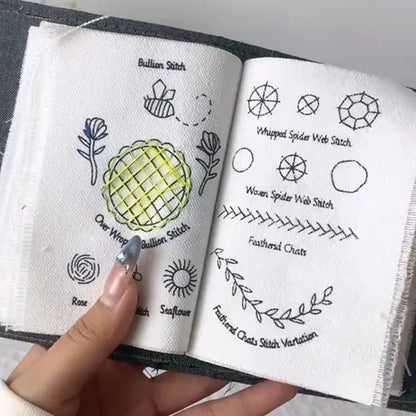 Bullion Stitch
Over Wrapped Bullion Stitch
Rose
Stitch
Seaflower
Whupped Spider Web Stitch
Woven Spider Web Stitch
Feathered Chats
Feathered Chats Stitch Variation